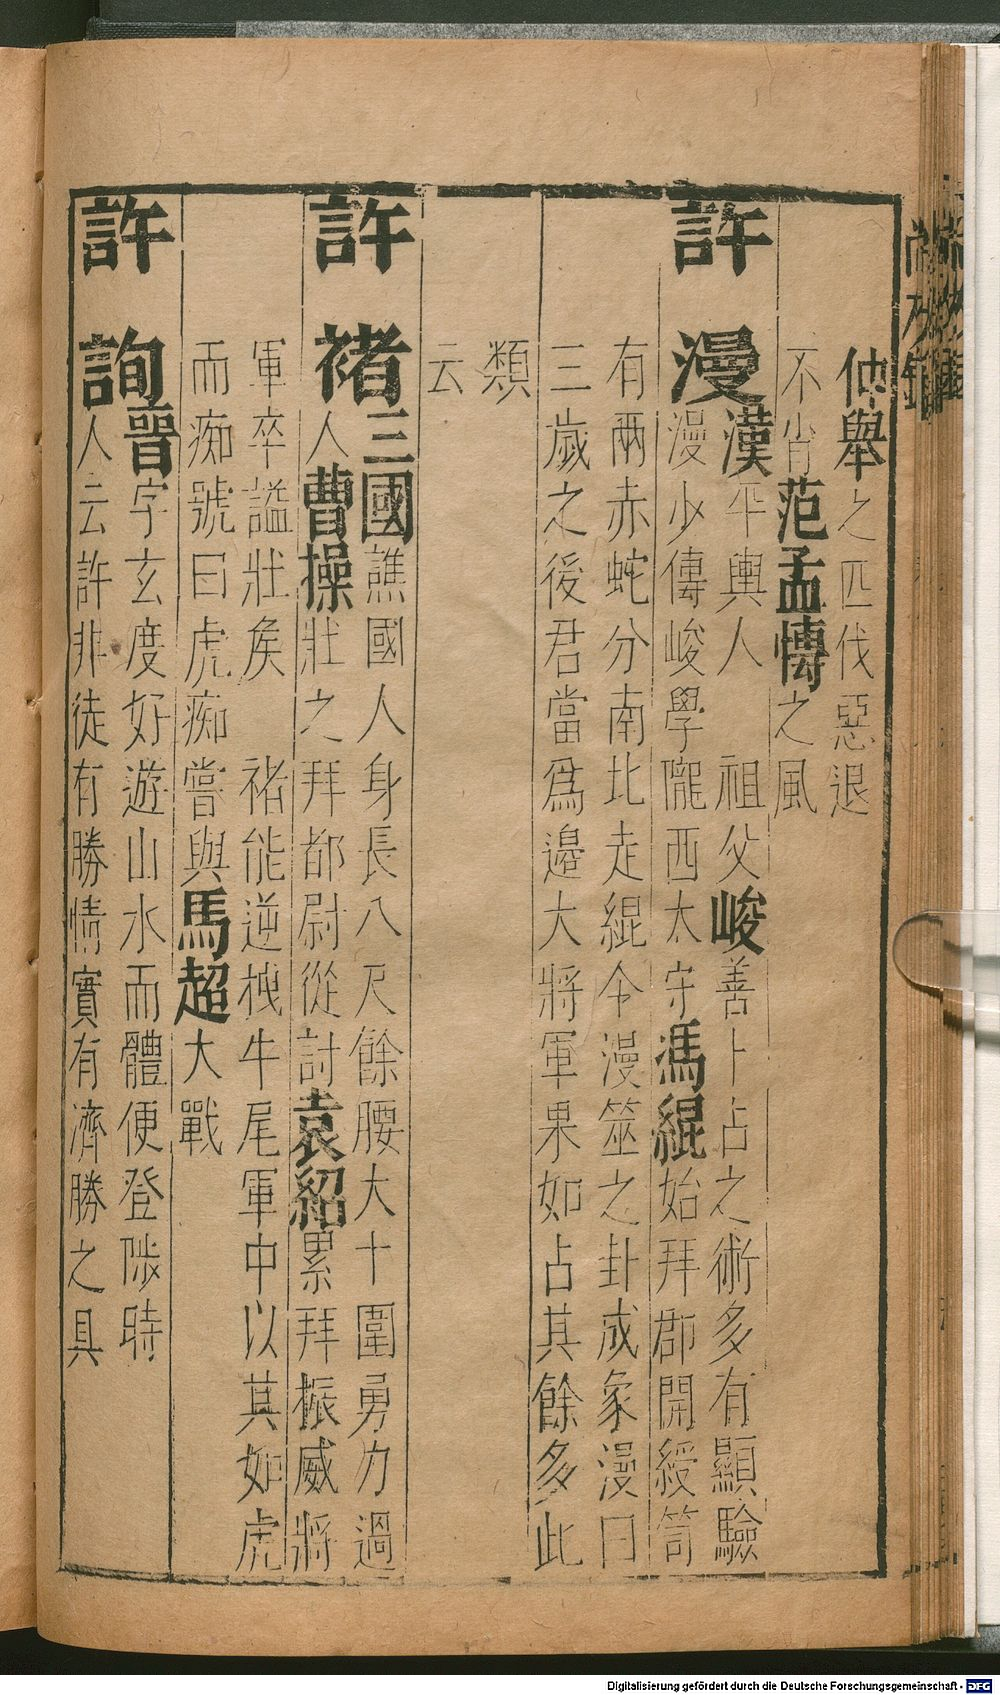 仲舉之匹伐惡退
不肖范孟慱之風
許漫漢平輿人 祖父峻善卜占之術多有顯驗
漫少傳峻學隴西太守馮緄始拜郡開綬笥
有兩赤蛇分南北走緄令漫筮之卦成象漫曰
三歲之後君當爲邉大將軍果如占其餘多此
類
云
許褚三國譙國人身長八尺餘腰大十圍勇力過
人曹操壯之拜都尉從討袁紹累拜振威將
軍卒謚壯矦 褚能逆拽牛尾軍中以其如虎
而痴號曰虎痴嘗與馬超大戰
許詢晉字玄度好遊山水而體便登陟時
人云許非徒有勝情實有濟勝之具
Digitalisierung gefördert durch die Deutsche Forschungsgemeinschaft - DFG